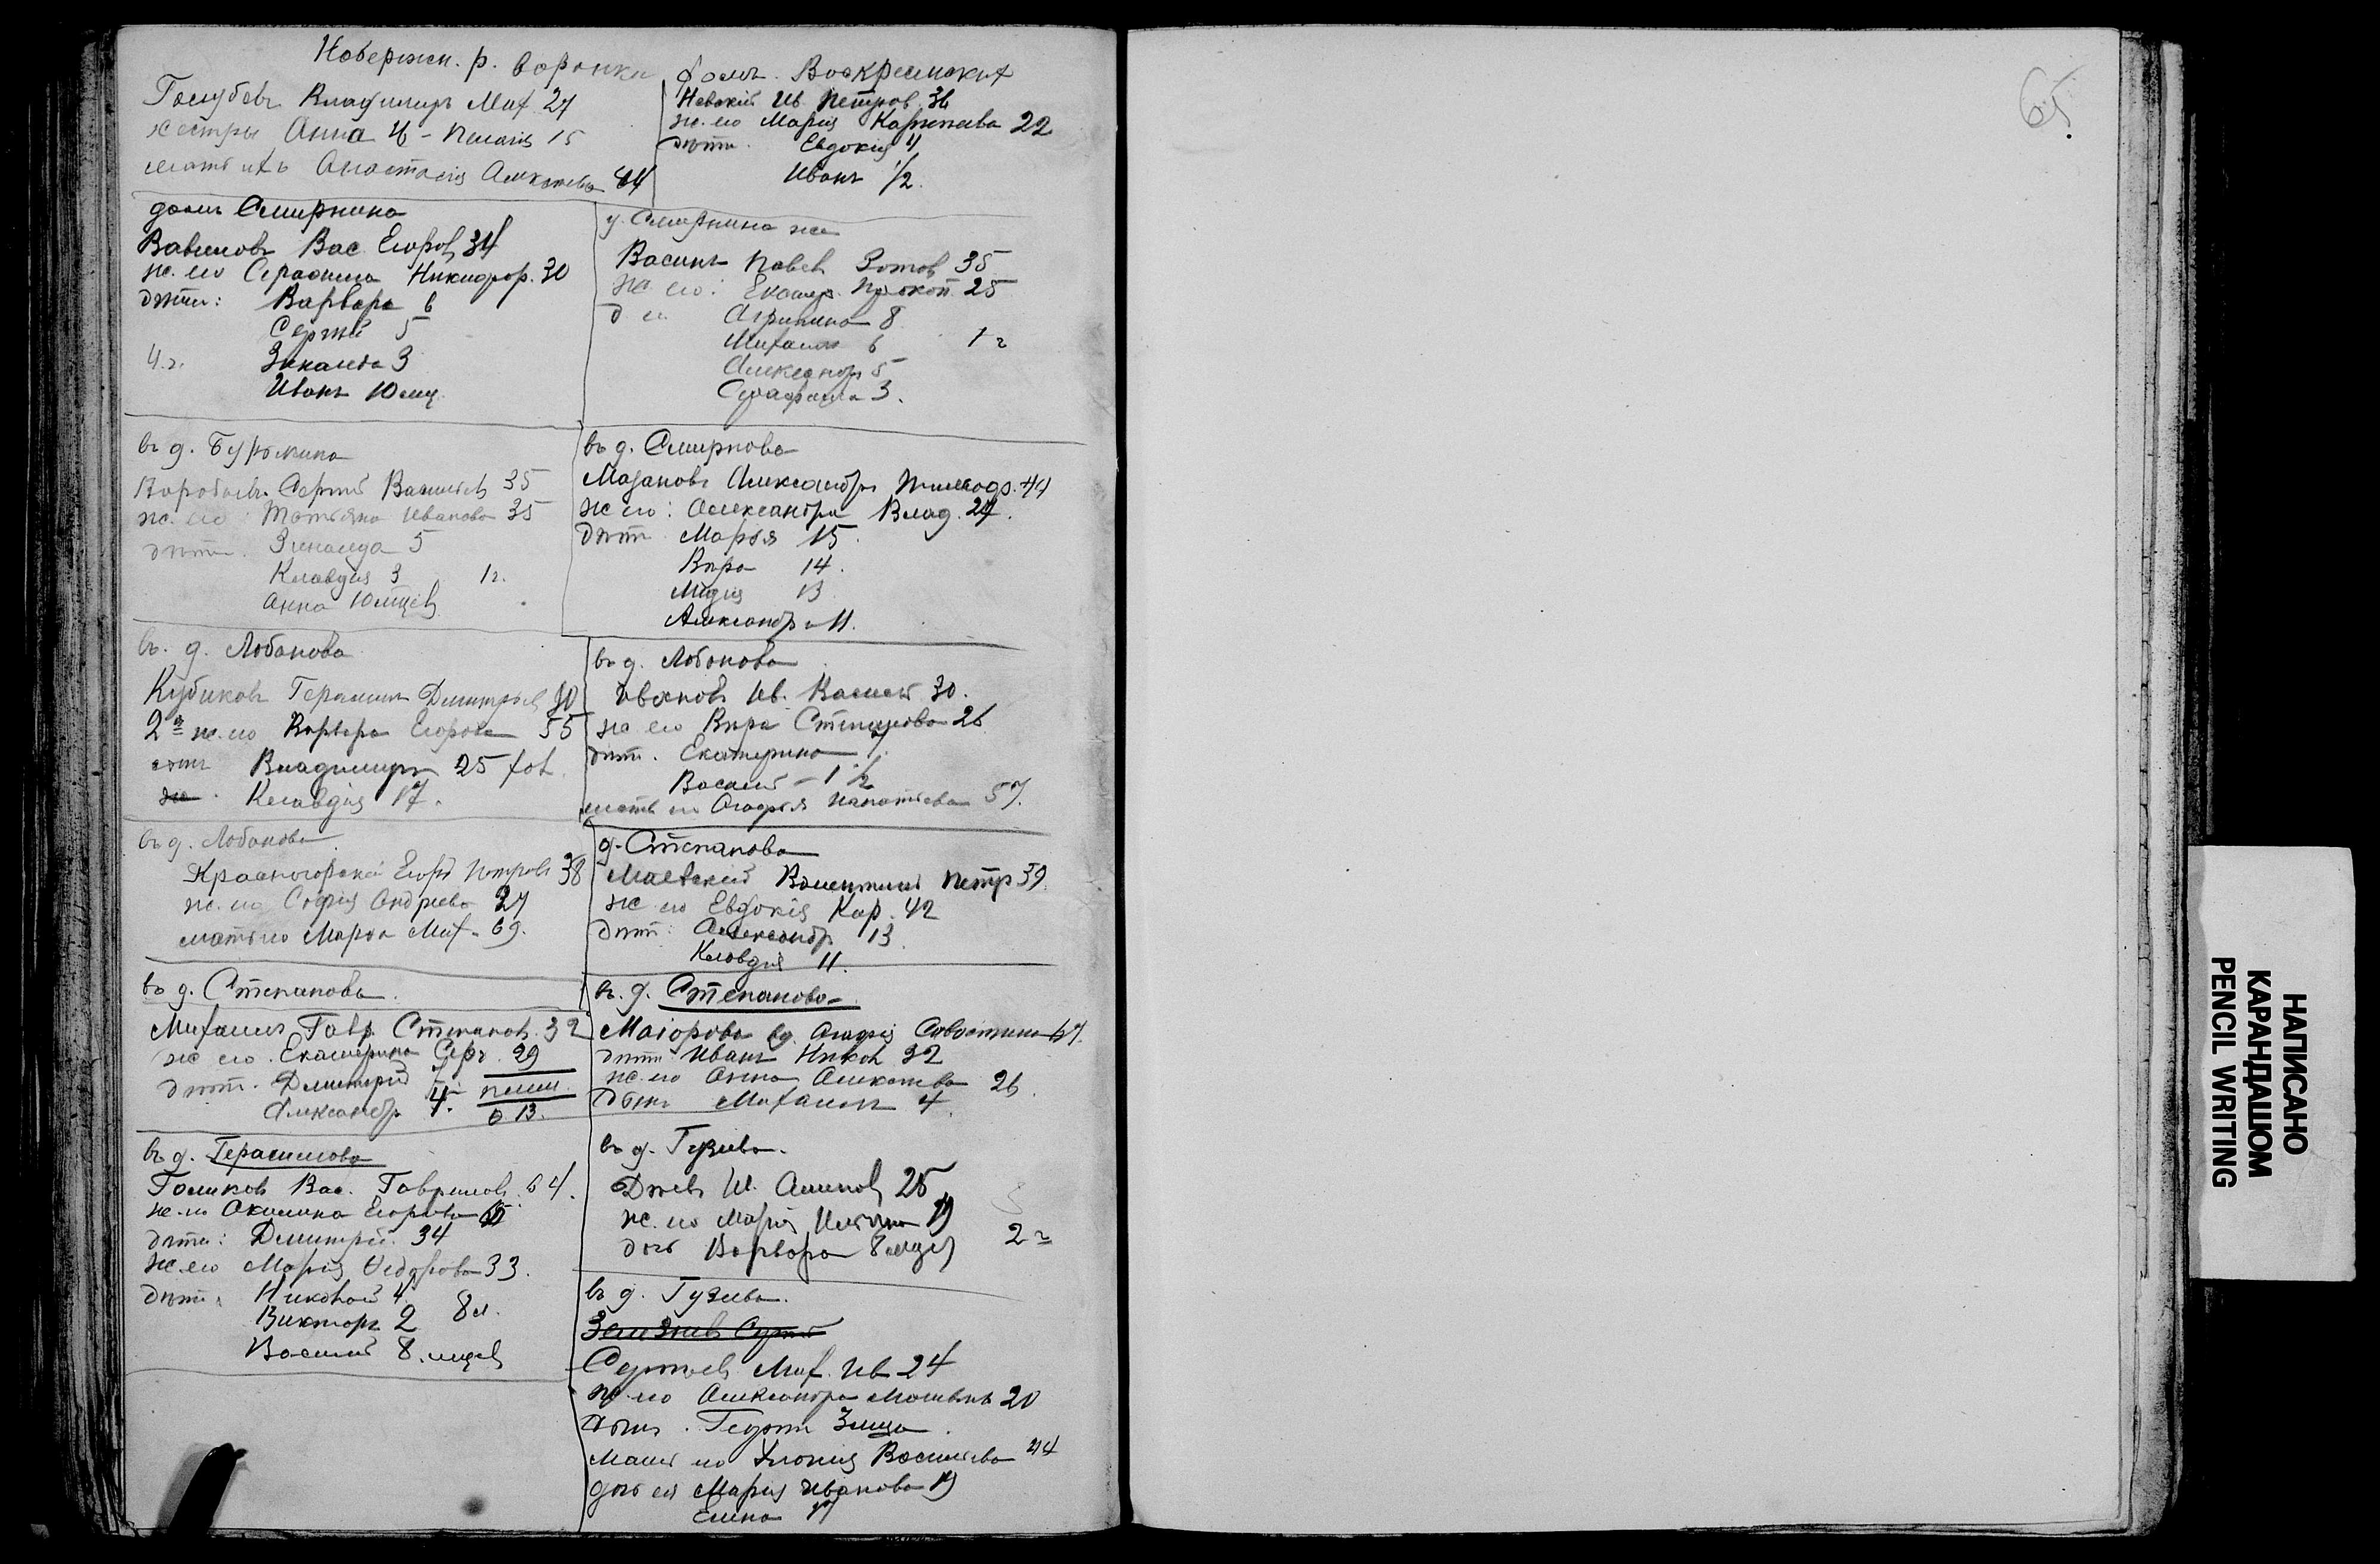 Набережн. р. Воронки
Голубевъ Владимиръ Мих 27
сестры Анна 16 - Пелагія 15
мать ихъ Анастасія Алексѣева 44
домъ Смирнина
Вавиловъ Вас. Егоров 34
ж. его Серафима Никифор. 30
дѣти: Варвара 6
Сергѣй 5
4 г. Зинаида 3
Иванъ 10 мц.
въ д. Бурѣнина
Воробьевъ Сергѣй Васильев 35
ж. его Татьяна Иванова 35
дѣти. Зинаида 5
Клавдія 3 1 г.
Анна 10 мцев
въ. д. Лобанова
Кубиковъ Герасимъ Дмитріев
2я ж. его Варвара Егорова 55
сынъ Владимиръ 25
Клавдія 17.
въ д. Лобанова
Красногорскій Егоръ Петровъ 38
ж. его Софія Андреева 27
мать его Марѳа Мих. 69.
въ д. Степанова.
Михаилъ Гавр. Степановъ. 32
ж его. Екатерина Серг. 29
дѣти. Дмитрій
Александръ 4. 13.
въ д. Герасимова
Голиков Вас. Гаврилов. 64.
ж. его Акилина Егорова
дѣти: Дмитрій. 34
ж. его Марія Ѳедорова 33.
дѣти. Николай 4.
Викторъ 2 8 м.
Василій 8. мцев
домъ. Воскресенскихъ
Невскій Ив. Петров. 36
ж. его Марія Карпеева 22
дѣти. Евдокія 4
Иванъ 1/2.
у. Смирнина же
Васинъ Павел Зотов 35
ж его: Екатер. Прокоп. 25
д и. Агрипина 8
Михаилъ 6 1 г
Александръ 5
Серафима 3.
въ д. Смирнова
Мазановъ Александръ 44
ж его: Александра Влад. 27.
дѣти Марья 15.
Вѣра 14.
Лидія 13
Александра 11.
въ д. Лобанова
Иванов Ив. Васильев 30.
ж его Вѣра Степанова 26
дѣти. Екатерина 7.
Василій - 1 1/2
мать его Агафья Ипатьева 57.
д. Степанова
Маевскій Валентинъ Петр 39.
ж его Евдокія Кар. 42
дѣти: Александръ 13.
Клавдія 11.
въ. д. Степанова.
Маіорова вд. Агафія Савостина 67.
дѣти Иванъ Никол 32
ж. его Анна Алексѣева 26.
Сынъ Михаилъ 4.
въ д. Гузѣева.
25
ж. его Марія 19
дочь Варвара 8 мцев 2 г
въ д. Гузѣева.
Сергѣев Мих. Ив 24
ж. его Александра Матвѣев 20
Сынъ. Георгій 3 мца.
Мать его Васильева 44
дочь ея Марія Иванова 19
Елена 17
65
НАПИСАНО
КАРАНДАШОМ
PENCIL WRITING